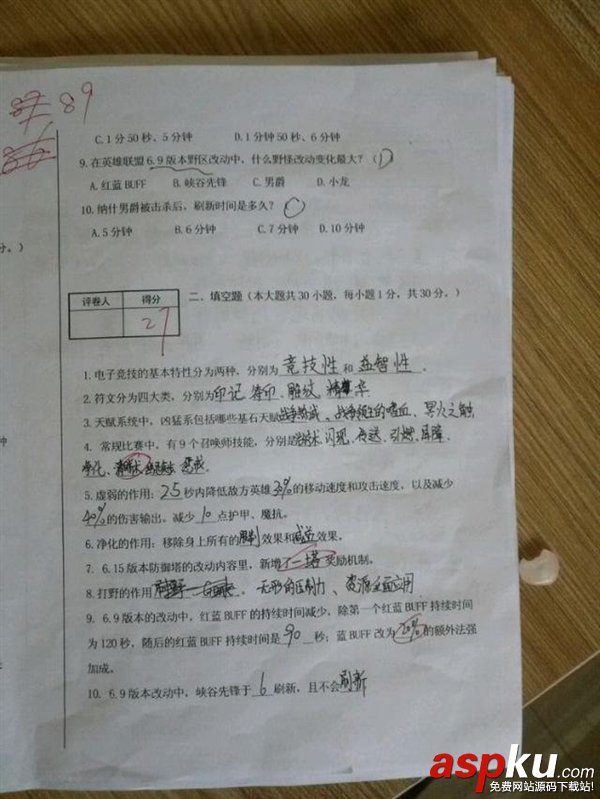 89
C.1分50秒、5分钟 D.1分钟50秒、6分钟
9.在英雄联盟6.9版本野区改动中，什么野怪改动变化最大？（D
A.红蓝BUFF B.峡谷先锋 C.男爵 D.小龙
10.纳什男爵被击杀后，刷新时间是多久？ C
A.5分钟 B.6分钟 C.7分钟 D.10分钟
分。）
评卷人 得分
27
二、填空题（本大题共30小题，每小题1分，共30分。）
1.电子竞技的基本特性分为两种，分别为 竞技性 和 益智性 。
2.符文分为四大类，分别为印记 符印、雕纹、精华
3.天赋系统中，凶猛系包括哪些基石天赋战争热诚、战争领主的嗜血、冥火之触
4. 常规比赛中，有9个召唤师技能，分别是治疗术、闪现、传送、引燃、屏障、
净化、 惩戒。
5.虚弱的作用：2.5秒内降低敌方英雄30%的移动速度和攻击速度，以及减少
40%的伤害输出。减少10点护甲、魔抗。
6.净化的作用：移除身上所有的限制效果和减益效果。
7. 6.15版本防御塔的改动内容里，新增了一塔奖励机制。
8.打野的作用 无形的压制力、资源全面应用
9. 6.9版本的改动中，红蓝BUFF的持续时间减少，除第一个红蓝BUFF持续时间
为120秒，随后的红蓝BUFF持续时间是90秒；蓝BUFF改为20%的额外法强
加成。
10. 6.9版本改动中，峡谷先锋于 6 刷新，且不会刷新
钟
aspku.com
免费网站源码下载站!